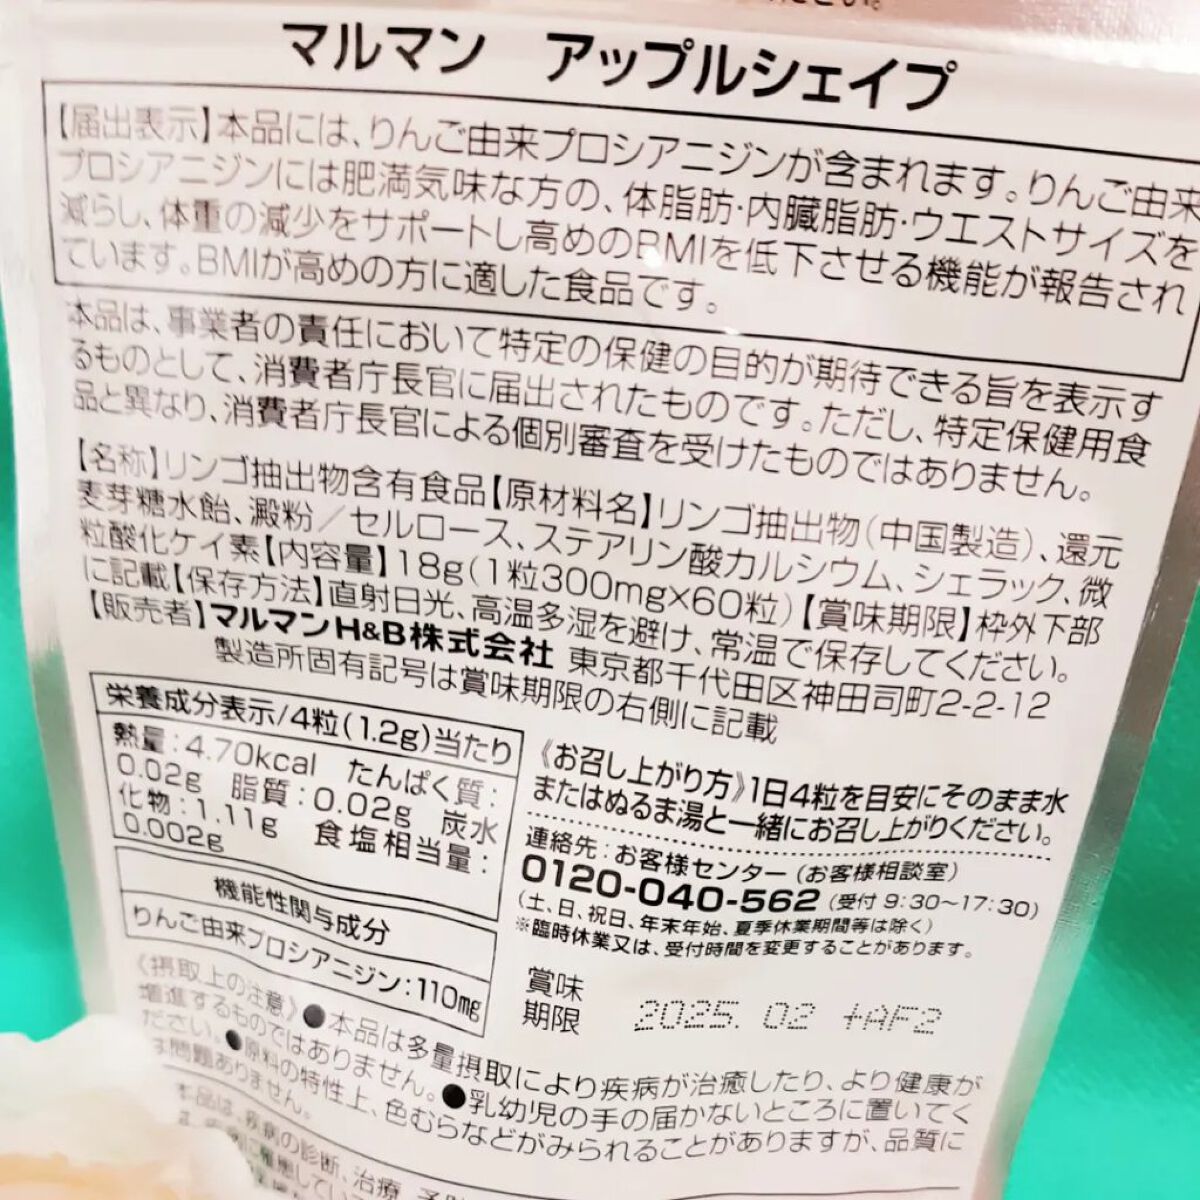 ださい。
マルマン　アップルシェイプ
【届出表示】本品には、りんご由来プロシアニジンが含まれます。りんご由来
プロシアニジンには肥満気味な方の、体脂肪・内臓脂肪・ウエストサイズを
減らし、体重の減少をサポートし高めのBMIを低下させる機能が報告され
ています。BMIが高めの方に適した食品です。
本品は、事業者の責任において特定の保健の目的が期待できる旨を表示す
るものとして、消費者庁長官に届出されたものです。ただし、特定保健用食
品と異なり、消費者庁長官による個別審査を受けたものではありません。
【名称】リンゴ抽出物含有食品【原材料名】リンゴ抽出物(中国製造)、還元
麦芽糖水飴、澱粉／セルロース、ステアリン酸カルシウム、シェラック、微
粒酸化ケイ素【内容量】18g(1粒300mg×60粒)【賞味期限】枠外下部
に記載【保存方法】直射日光、高温多湿を避け、常温で保存してください。
【販売者】マルマンH&B株式会社 東京都千代田区神田司町2-2-12
製造所固有記号は賞味期限の右側に記載
栄養成分表示/4粒(1.2g)当たり
熱量:4.70kcal たんぱく質:
0.02g 脂質:0.02g 炭水
化物:1.11g 食塩相当量:
0.002g
機能性関与成分
りんご由来プロシアニジン:110mg
《お召し上がり方》1日4粒を目安にそのまま水
またはぬるま湯と一緒にお召し上がりください。
連絡先:お客様センター(お客様相談室)
0120-040-562(受付 9:30〜17:30)
(土、日、祝日、年末年始、夏季休業期間等は除く)
※臨時休業又は、受付時間を変更することがあります。
賞味
期限
2025. 02 +AF2
《摂取上の注意》●本品は多量摂取により疾病が治癒したり、より健康が
増進するものではありません。●乳幼児の手の届かないところに置いてく
ださい。●原料の特性上、色むらなどがみられることがありますが、品質に
は問題ありません。
本品は、疾病の診断、治療、予防